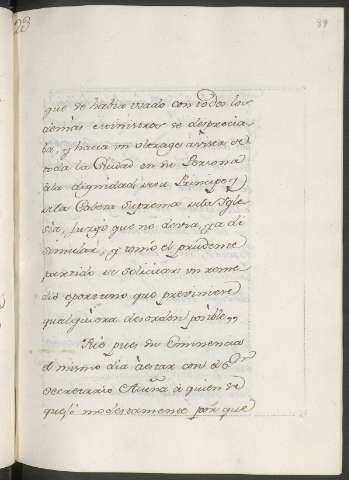 23
89
que se havia usado con todos los
demàs ministros se desprecia
ba, y hacia un ultrage à vista de
toda la Ciudad en su Persona
à la dignidad de su Principe y
de la Cabeza Suprema de la Igle
sia, juzgò que no devia, ya di
simular, y tomò el prudente
partido de solicitar un reme
dio oportuno que previniere
qualquiera desorden posible,,
Fue pues su Eminencia
el mismo dia à estar con el Sor
Secretario Acuña à quien se
quejò modestamente por que